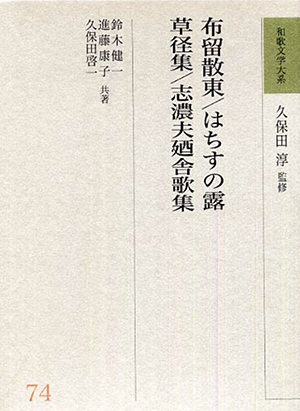 和歌文学大系
久保田 淳 監修
布留散東/はちすの露
草径集/志濃夫廼舎歌集
鈴木健一
進藤康子
久保田啓一
共著
74